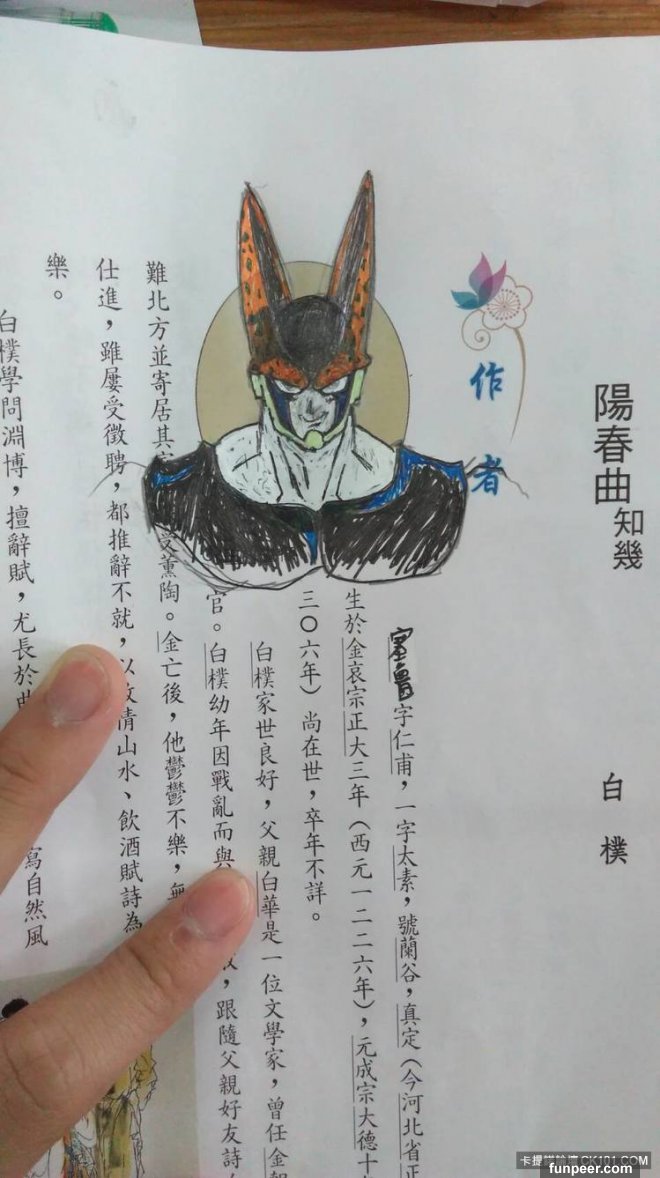 陽春曲知幾
白樸
作者
賽魯字仁甫，一字太素，號蘭谷，真定（今河北省正
生於金哀宗正大三年（西元一二二六年），元成宗大德十
三〇六年）尚在世，卒年不詳。
白樸家世良好，父親白華是一位文學家，曾任金朝
官。白樸幼年因戰亂而與，跟隨父親好友
難北方並寄居其受薰陶。金亡後，他鬱鬱不樂，無
仕進，雖屢受徵聘，都推辭不就，以放情山水、飲酒賦詩為
樂。
白樸學問淵博，擅辭賦，尤長於曲寫自然風
卡提諾論壇 CK101.COM
funpeer.com